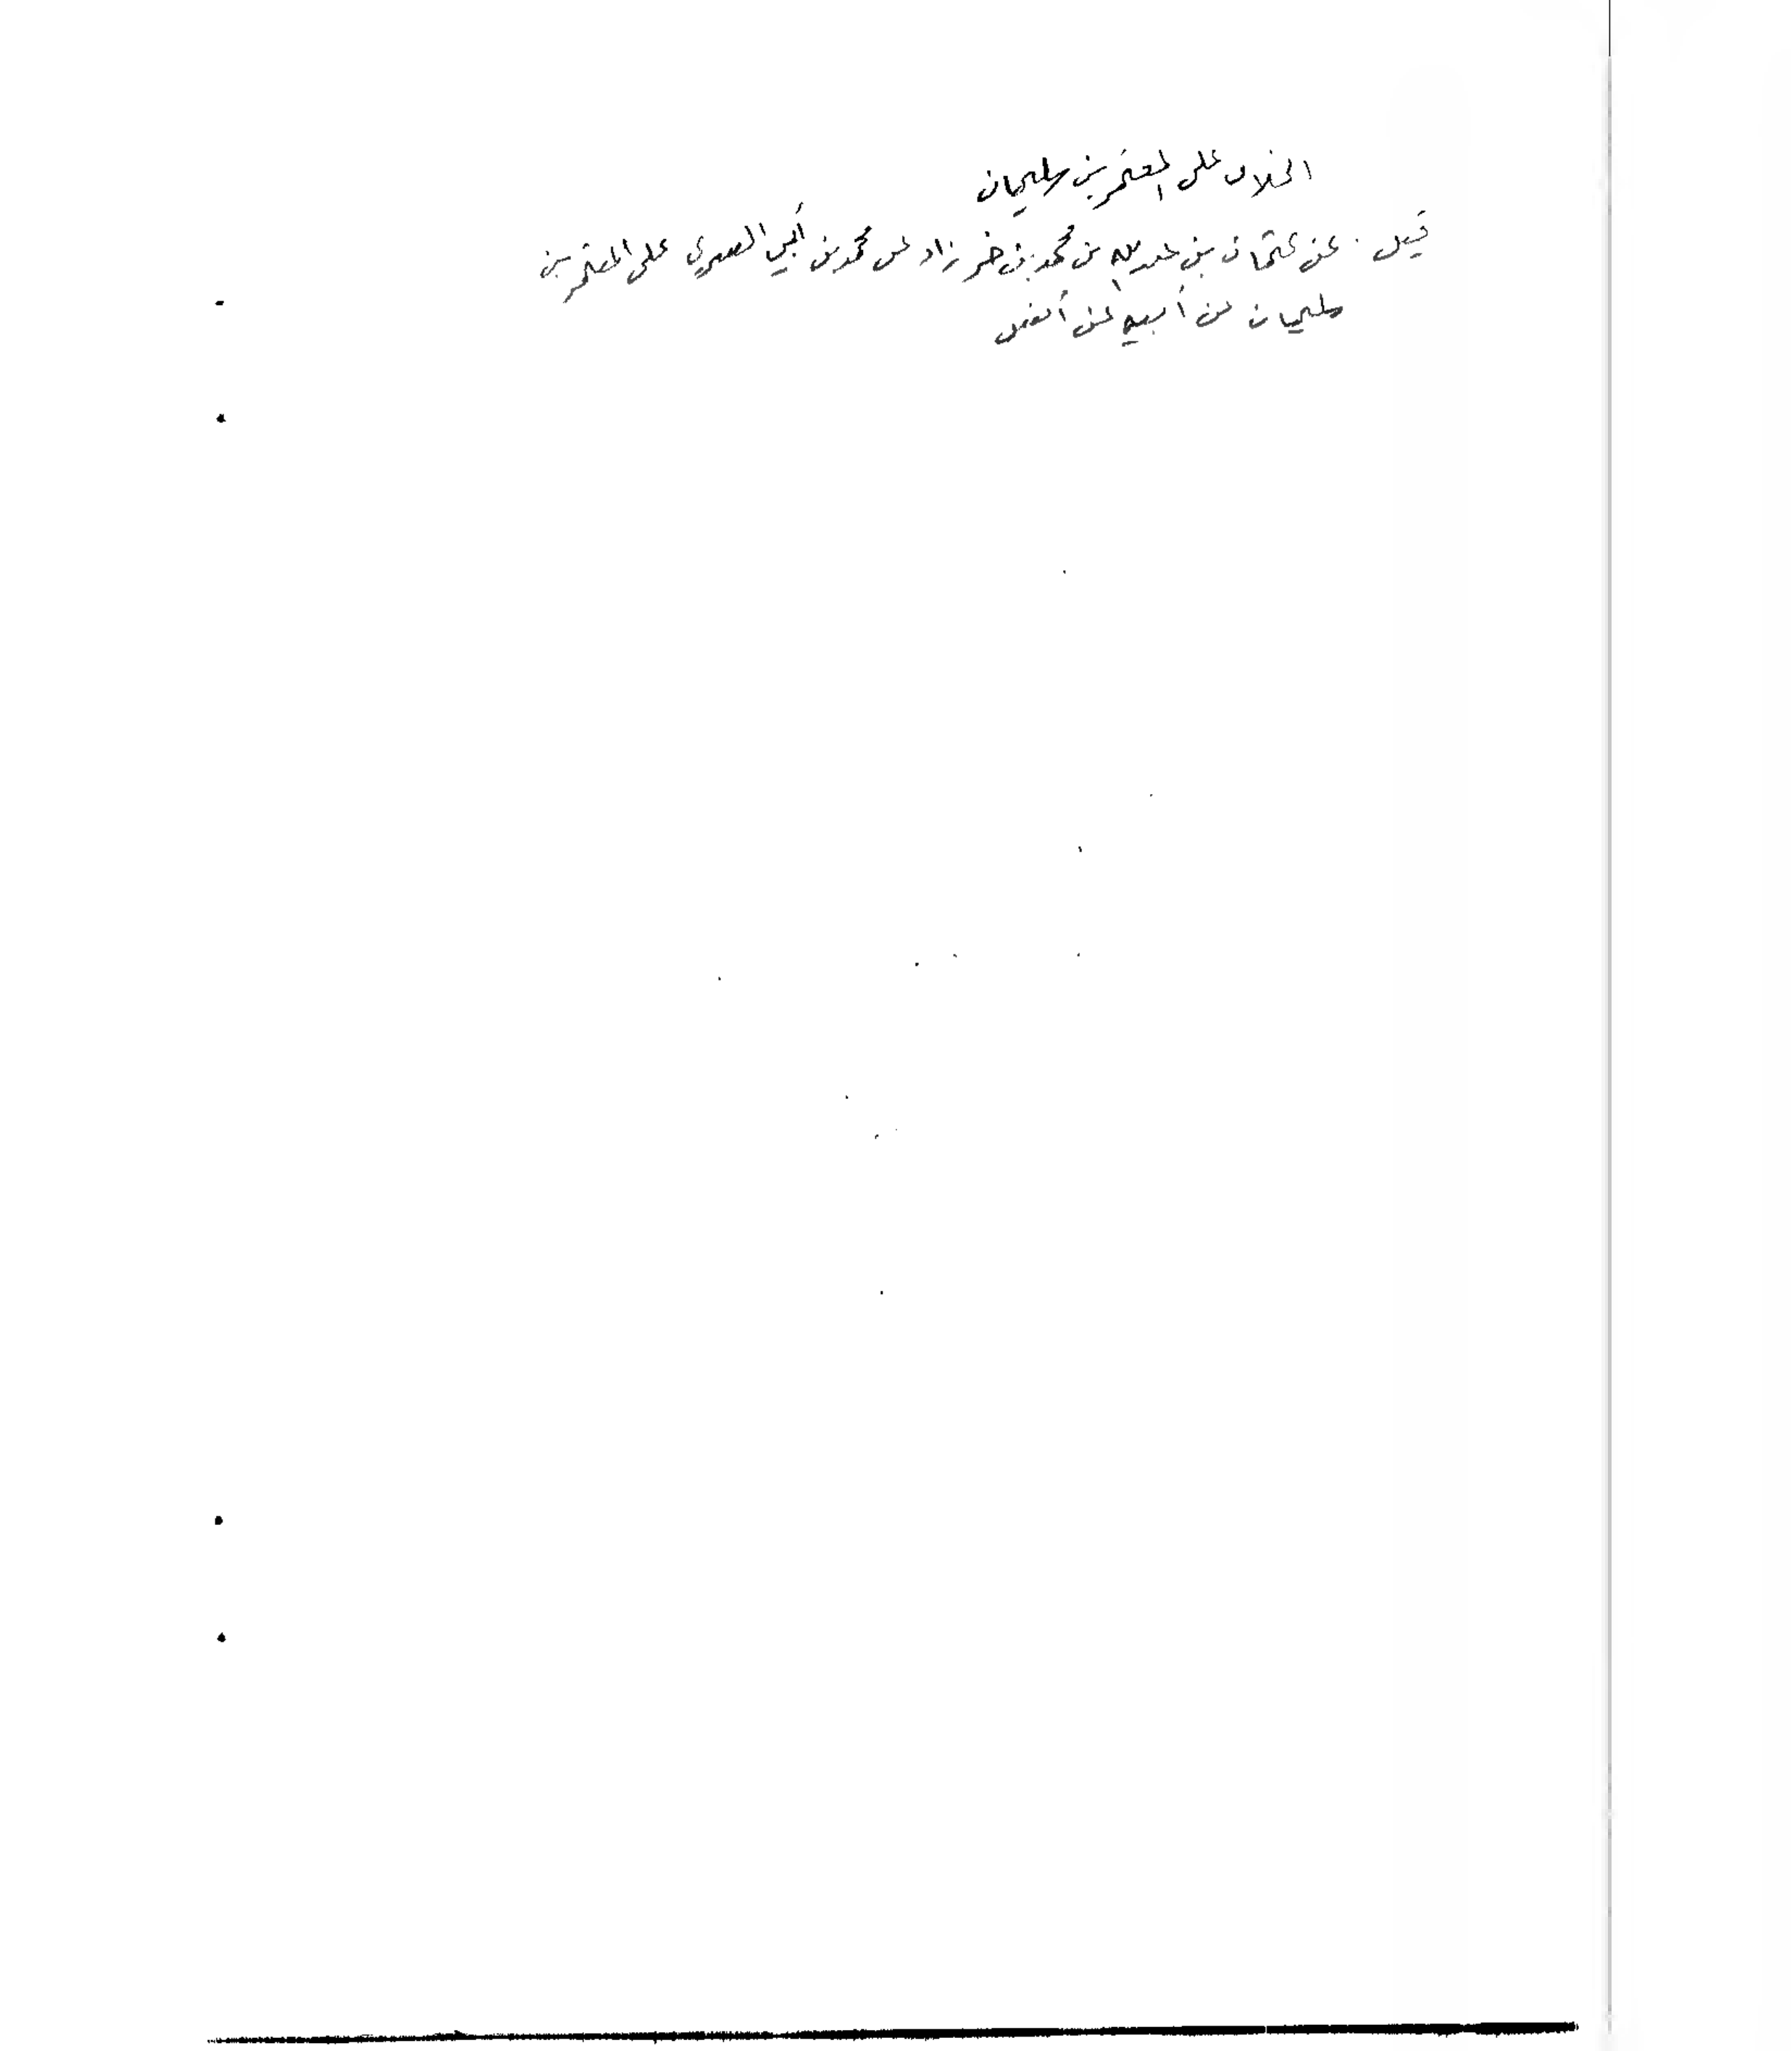 الخلاف على المعتمر بن سليمان
قيل . عن عثمان بن عبد الله بن محمد بن خرزاد عن محمد بن أبي السري على المعتمر بن
سليمان عن أبيه عن أنس